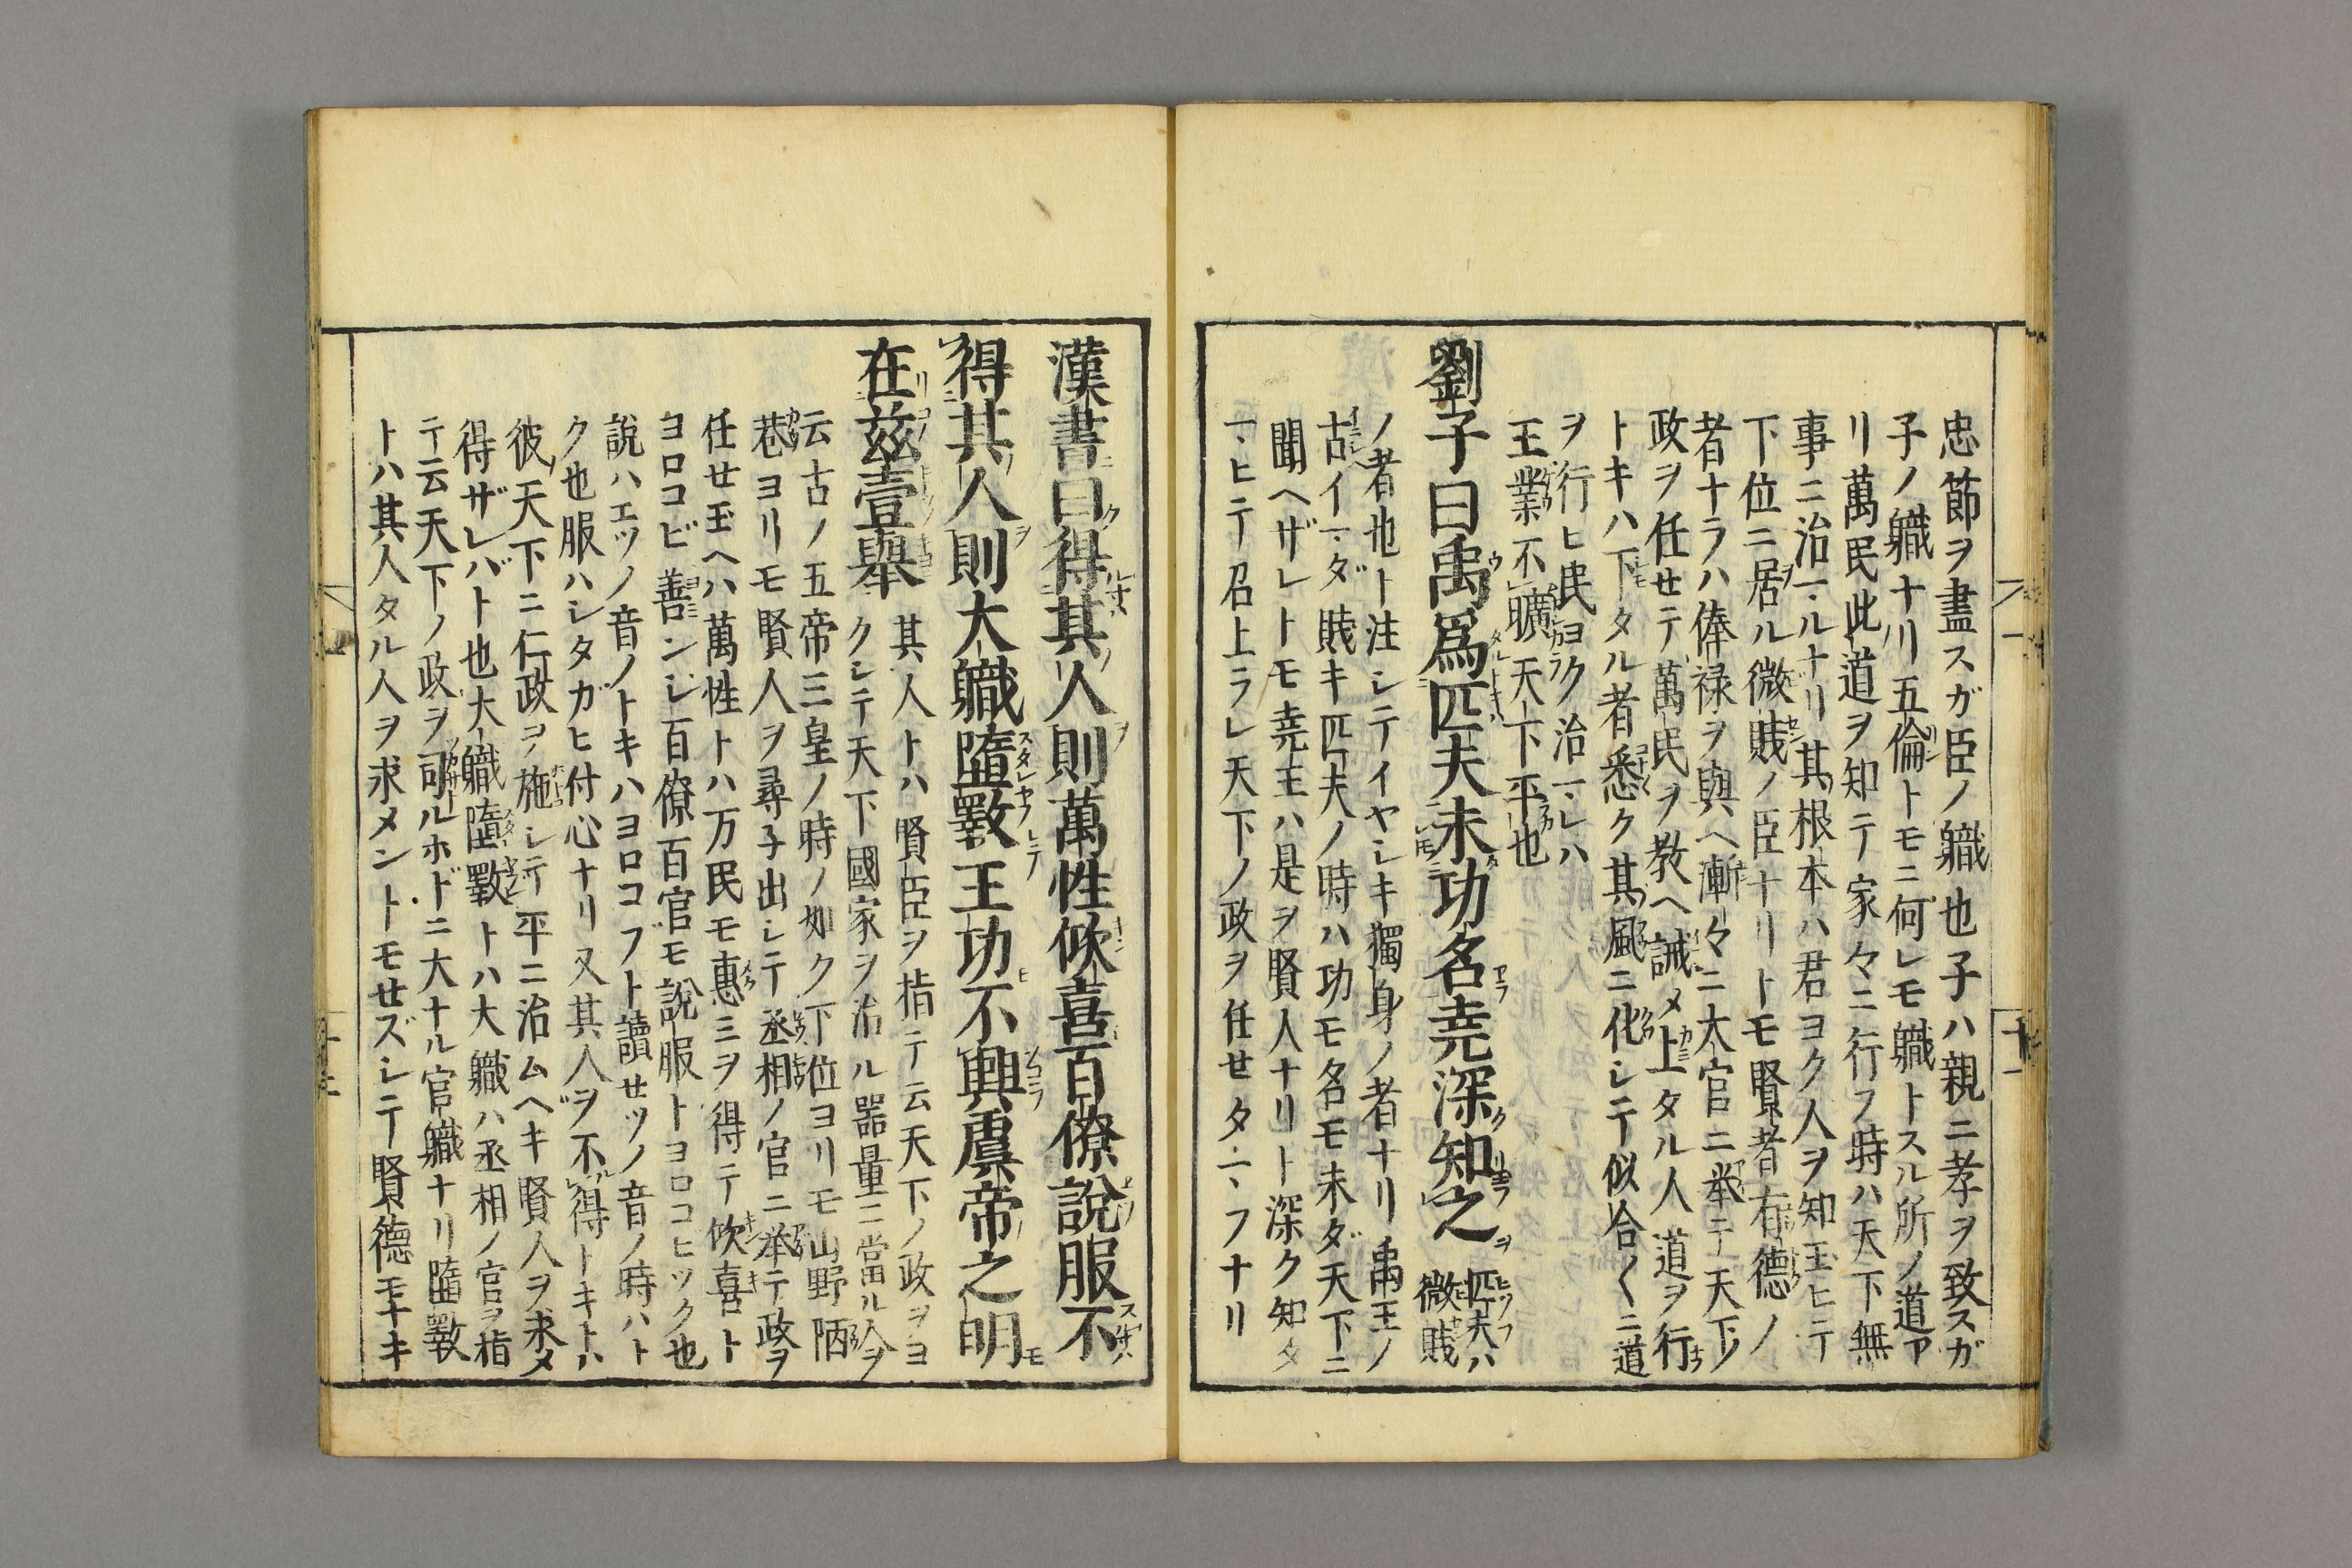 忠節ヲ盡スガ臣ノ軄也子ハ親ニ孝ヲ致スガ
子ノ軄ナリ五倫トモニ何レモ軄トスル所ノ道ア
リ萬民此道ヲ知テ家々ニ行フ時ハ天下無
事ニ治マルナリ其根本ハ君ヨク人ヲ知玉ヒテ
下位ニ居ル微賎ノ臣ナリトモ賢者有德ノ
者ナラハ俸禄ヲ與ヘ漸々ニ大官ニ举テ天下ノ
政ヲ任せテ萬民ヲ教ヘ誡メ上タル人道ヲ行
トキハ下タル者悉ク其風ニ化シテ似合〱ニ道
ヲ行ヒ民ヨク治マレハ
王業不曠天下平也
劉子曰禹爲匹夫未功名尭深知之 匹夫ハ
微賎
ノ者也ト注シテイヤシキ獨身ノ者ナリ禹王ノ
古イマダ賎キ匹夫ノ時ハ功モ名モ未ダ天下ニ
聞ヘザレトモ尭王ハ是ヲ賢人ナリト深ク知タ
マヒテ召上ラレ天下ノ政ヲ任せタマフナリ
十一
漢書曰得其人則萬性欣喜百僚說服不
得其人則大軄墮斁王功不興虞帝之明
在兹壹舉 其人トハ賢臣ヲ指テ云天下ノ政ヲヨ
クシテ天下國家ヲ治ル器量ニ當ル人ヲ
云古ノ五帝三皇ノ時ノ如ク下位ヨリモ山野陋
巷ヨリモ賢人ヲ尋子出シテ丞相ノ官ニ举テ政ヲ
任せ玉ヘハ萬性トハ万民モ惠ミヲ得テ欣喜ト
ヨロコビ善ンジ百僚百官モ說服トヨロコヒツク也
說ハエツノ音ノトキハヨロコブト讀せツノ音ノ時ハト
ク也服ハシタガヒ付心ナリ又其人ヲ不得トキトハ
彼天下ニ仁政ヲ施シテ平ニ治ムヘキ賢人ヲ求メ
得ザレバト也大軄墮斁トハ大軄ハ丞相ノ官ヲ指
テ云天下ノ政ヲ司ルホドニ大ナル官軄ナリ墮斁
トハ其人タル人ヲ求メントモせズシテ賢德モナキ